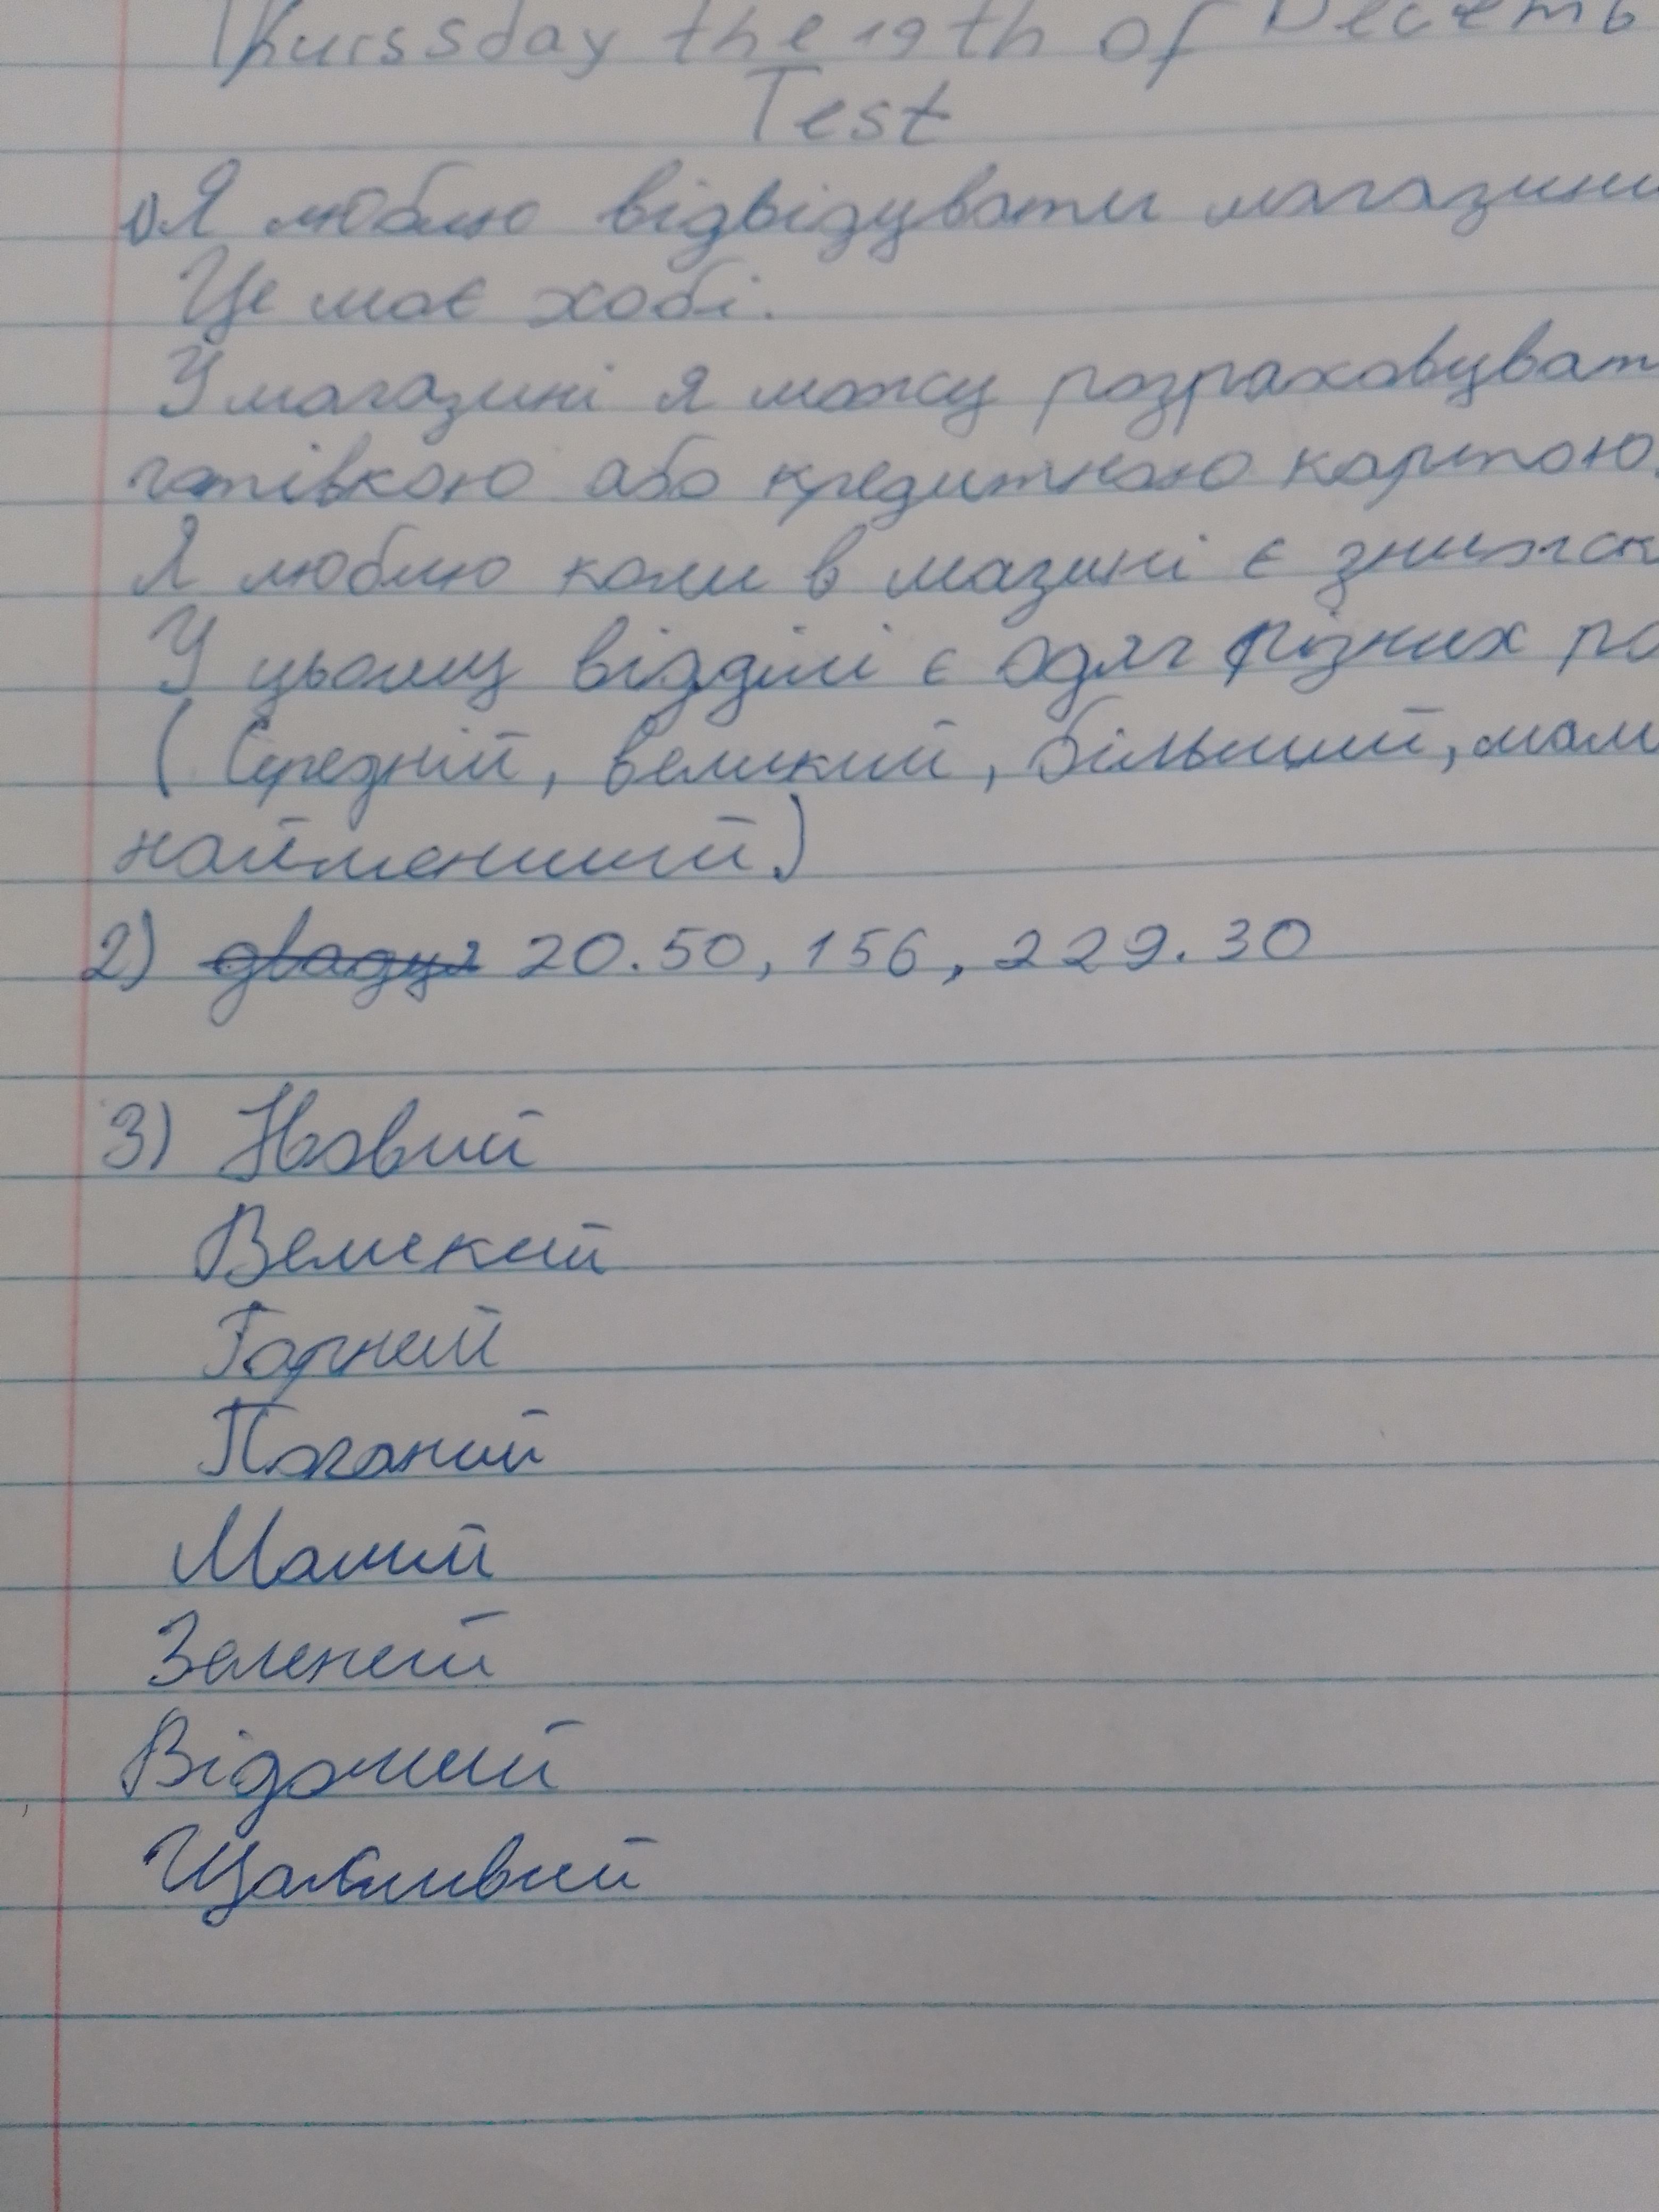 Thurssday the 19th of Decemb
Test
1) Я люблю відвідувати магазини
Це моє хобі.
У магазині я можу розраховуват
готівкою або кредитною картою.
Я люблю коли в мазині є знижк
У цьому відділі є одяг різних ро
(Середній, великий, більший, мал
найменший)
2) двадця 20.50, 156, 229.30
3) Новий
Великий
Гарний
Поганий
Малий
Зелений
Відомий
Щасливий